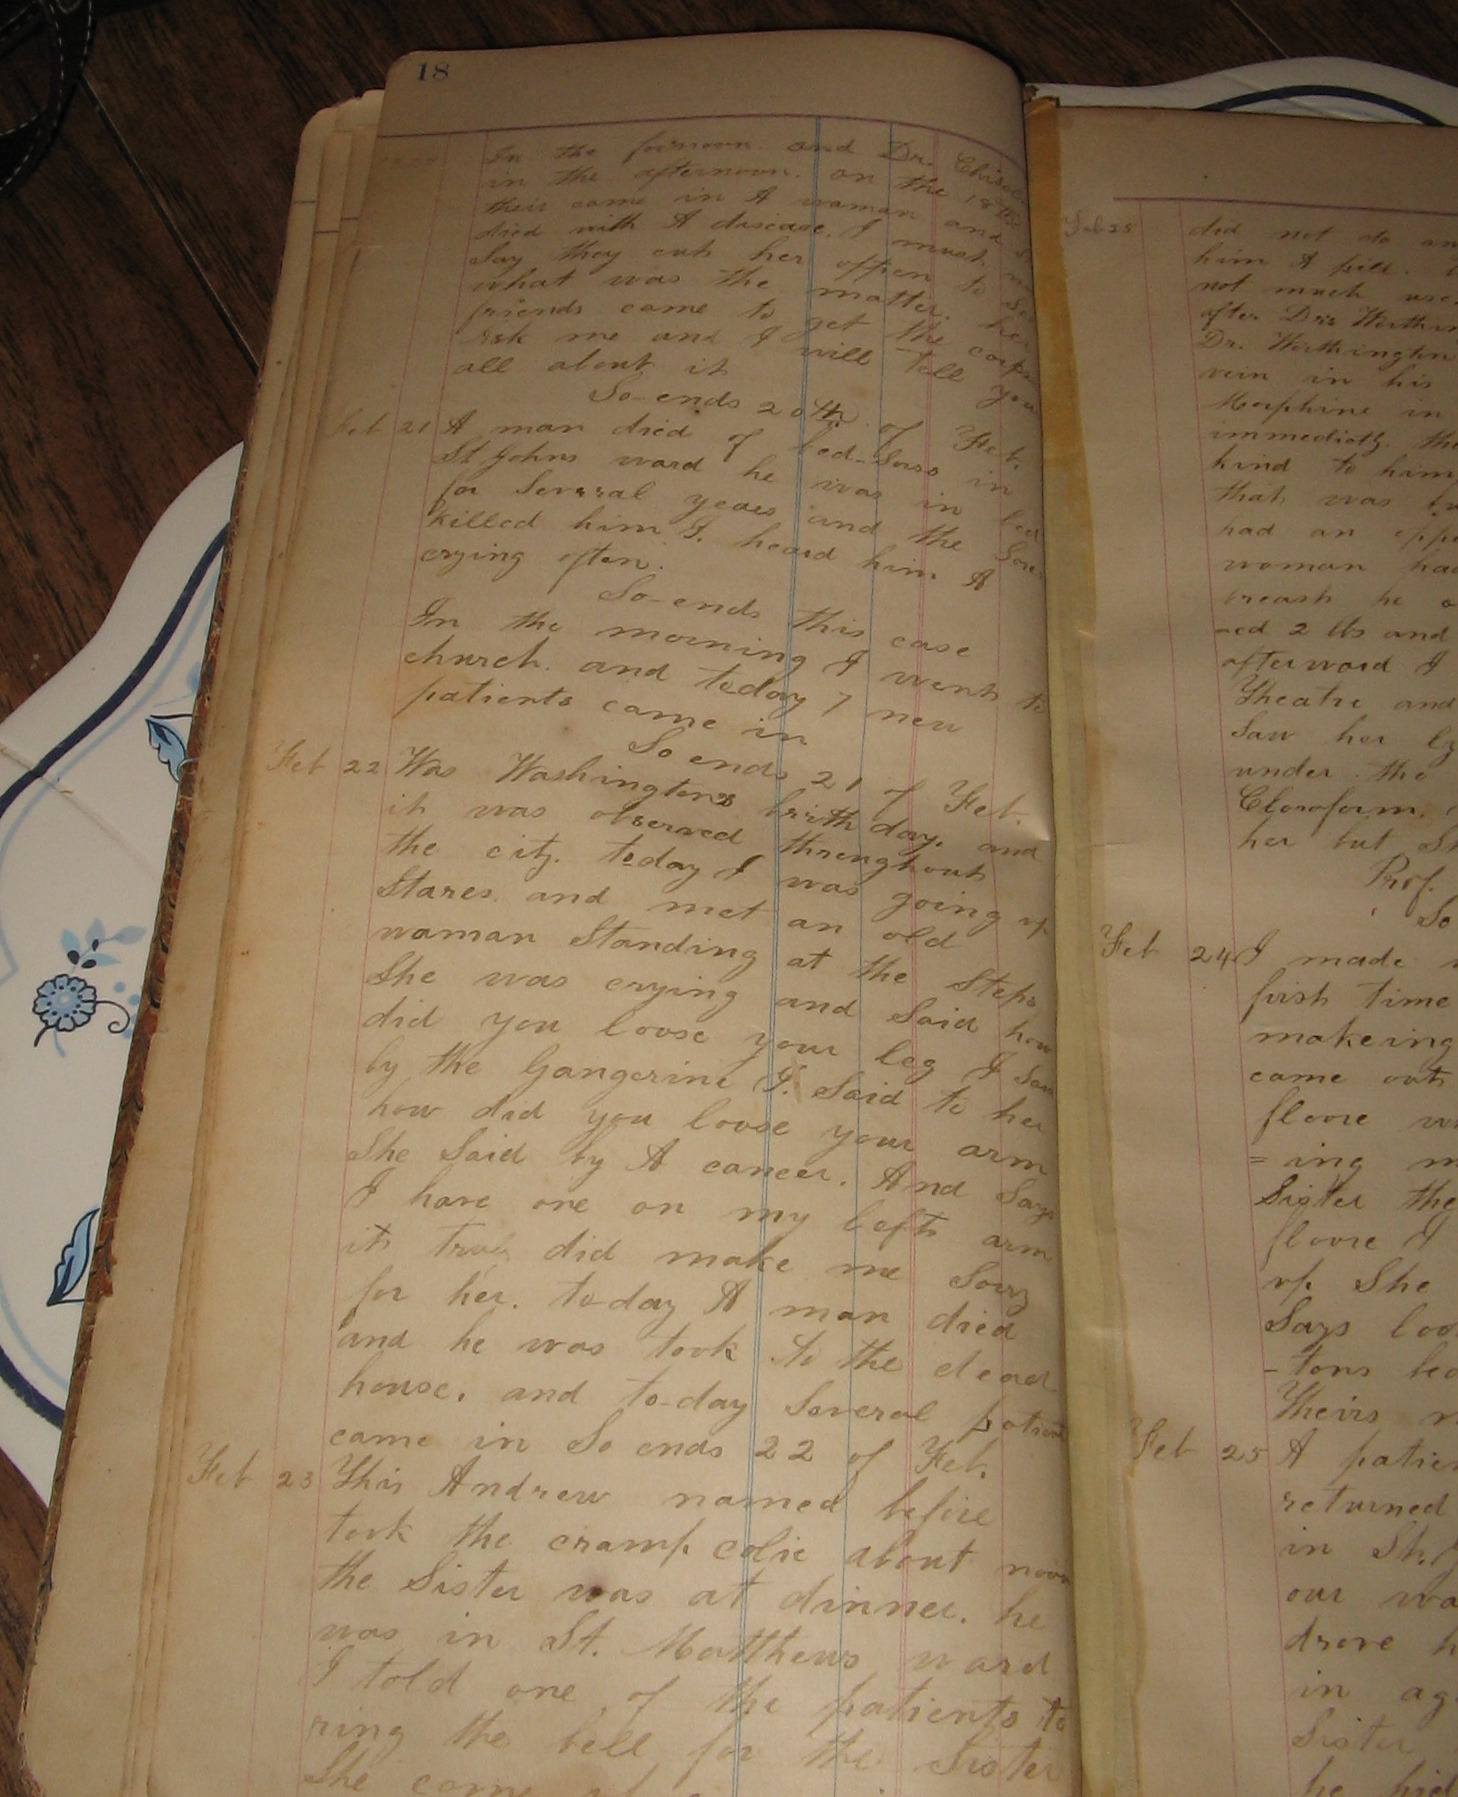 18
In the forenoon. and Dr. Chisol
in the afternoon. on the 18th
their came in A woman and
died with A disease. I must
Say they cut her oppen to
what was the matter. her
friends came to get the corps
Ask me and I will tell you
all about it
So-ends 20th. of Feb.
Feb 21 A man died of bed-Sors in
St Johns ward he was in bed
for Several years and the Sors
killed him I. heard him A
crying often.
So-ends this case
In the morning I went to
church. and today 7 new
patients came in
So ends 21 of Feb.
Feb 22 Was Washingtons birth day. and
it was observed throughout
the city. today I was going up
Stares. and met an old
woman Standing at the Steps
She was crying and Said how
did you loose your leg I Said
by the Gangerine I. Said to her
how did you loose your arm
She Said by A cancer. And Says
I have one on my left arm
it truly did make me Sorry
for her. to-day A man died
and he was took to the dead
house. and to-day Several patient
came in So ends 22 of Feb.
Feb 23 This Andrew named before
took the cramp colic about noon
the Sister was at dinner. he
was in St. Matthews ward
I told one of the patients to
ring the bell for the Sister
She came
Feb 23
did not do
him A pill.
not much use
after Drs
Dr. Worthington
vein in his
Morphine in
immediatly. the
kind to him
that was
had an
woman had
breast he
-ed 2 lbs and
afterward I
Theatre and
Saw her
under the
Cloroform.
her but
Prof.
So
Feb 24 I made
first time
makeing
came out
floore
=ing
Sister the
floore I
up. She
Says
-tons
Theirs
Feb 25 A
returned
in St.
our
drove
in
Sister
he